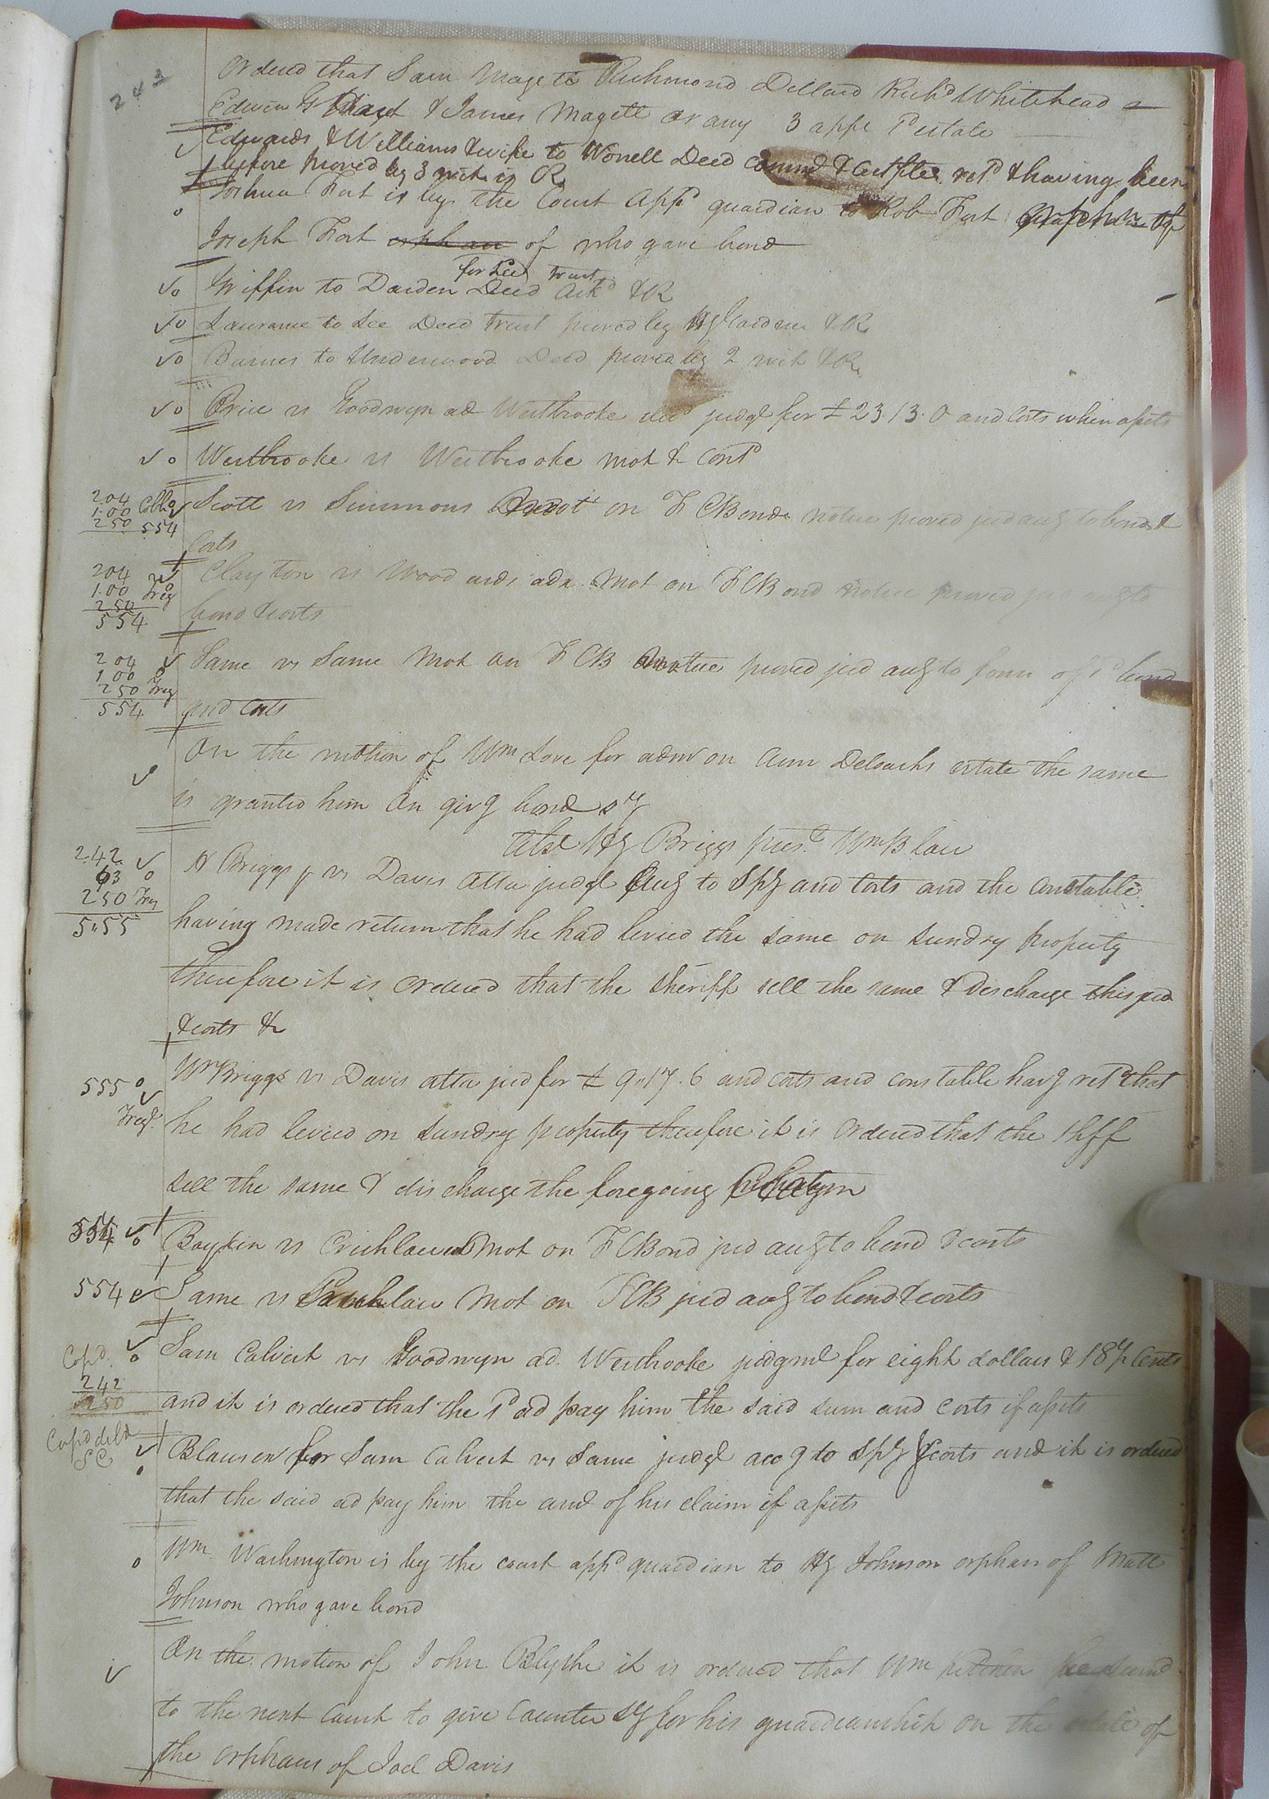 243
Ordered that Sam Magett Richmond Dellard Richd Whitehead
Edwin G & James Magett or any 3 appr estate
Edwards & Williams & wife to Worrell Deed & Certifte retd & having been
before proved by 3 wits is R
Joshua Fort is by the Court Appd guardian to Rob Fort orphan of
Joseph Fort orphan of who gave bond
for Lee trust
Griffin to Darden Deed Ackd & R
Lawrance to Lee Deed trust proved by & R
Barnes to Underwood Deed proved by 2 wits & R
Price vs Goodwyn ad Westbrooke decd judgt for £ 23.13.0 and Costs when assets
Westbrooke vs Westbrooke mot & contd
204
100
250 554
Scott vs Simmons on F C Bond notice proved jud accg to bond &
Costs
204
100
250
554
Clayton vs Wood adx Mot on F C Bond notice proved jud accg to
bond & costs
204
100
250
554
Same vs Same Mot on F C B notice proved jud accg to form of sd bond
and Costs
On the motion of Wm Love for admr on Ann Deloachs estate the same
is granted him on givg bond sy
abst Hy Briggs prest Wm Blow
242
63
250
5.55
H Briggs vs Davis Atta judgt accg to Spy and Costs and the constable
having made return that he had levied the same on sundry property
therefore it is ordered that the sheriff sell the same & discharge this jud
& costs &c
555
Wm Briggs vs Davis atta jud for £ 9.17.6 and costs and constable havg retd that
he had levied on sundry property therefore it is ordered that the Shff
sell the same & discharge the foregoing
554 Boykin vs Crichlow Mot on F C Bond jud accg to bond & costs
554 Same vs Crichlow Mot on F C B jud accg to bond & costs
Copd.
242
250
Sam Calvert vs Goodwyn ad. Westbrooke judgmt for eight dollars & 18½ Cents
and it is ordered that the sd ad pay him the said sum and costs if assets
Blausen for Sam Calvert vs Same judgt accg to Spy & costs and it is ordered
that the said ad pay him the amt of his claim if assets
Wm Washington is by the court appd guardian to Hy Johnson orphan of Matt
Johnson who gave bond
On the motion of John Blythe it is ordered that Wm be sumd
to the next Court to give counter sy for his guardianship on the estate of
the orphans of Joel Davis